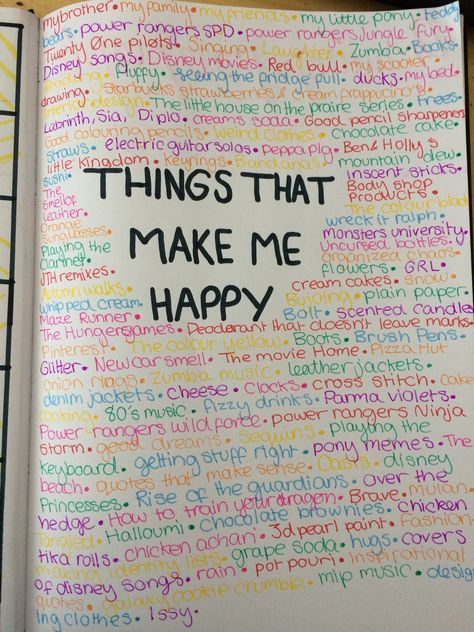 mybrother • my family • my friends • my little pony • teddy
bears • power rangers SPD • power rangers Jungle fury
Twenty Øne piløts • Singing • Laughter • Zumba • Books
Disney songs • Disney movies • Red bull • my scooter •
Reading • fluffy • seeing the fridge full • ducks • my bed •
drawing • Starbucks strawberries & cream frappucino •
interior design • The little house on the praire series • trees •
Labrinth, Sia, Diplo • creams soda • Good pencil sharpeners
Good colouring pencils • Weird clothes • chocolate cake •
straws • electric guitar solos • peppa pig • Ben & Holly's
little Kingdom • Keyrings • Bandanas • mountain dew •
sushi • inscent sticks •
The Body shop
smell of products •
leather • The colour black
orange wreck it ralph •
sunglasses • Monsters university
Playing the uncursed bottles •
Clarinet • organized chaos
JTH remixes • flowers • GRL •
Autumn walks • cream cakes • snow •
THINGS THAT
MAKE ME
HAPPY
whipped cream • Bujoing • plain paper •
Maze Runner • Bolt • scented candles
The Hungergames • Deodorant that doesn't leave marks
Pinterest • The colour yellow • Boots • Brush Pens •
Glitter • New car smell • The movie Home • Pizza Hut
onion rings • Zumba music • leather jackets •
denim jackets • cheese • Clocks • cross stitch • cake
cooking • 80's music • fizzy drinks • Parma violets •
Power rangers wild force • power rangers Ninja
Storm • good dreams • Sequins • playing the
keyboard • getting stuff right • pony memes • The
beach • quotes that make sense • Oasis • disney
Princesses • Rise of the guardians • over the
hedge • How to train your dragon • Brave • mulan •
Tangled • Halloumi • chocolate brownies • chicken
tika rolls • chicken achari • 3d pearl paint • Fashion
making identity lists • grape soda • hugs • covers
of disney songs • rain • pot pouri • Inspirational
quotes • galaxy cookie crumble • mlp music • design
ing clothes • Issy •